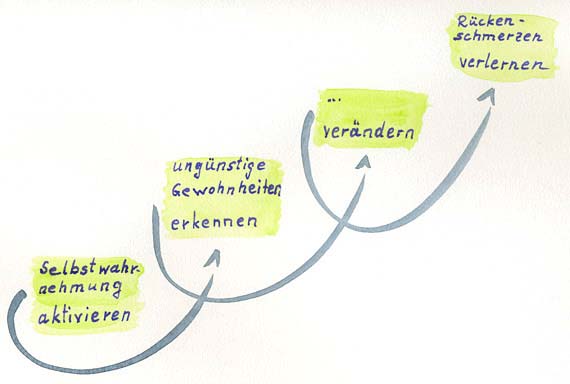 Selbstwahr-
nehmung
aktivieren
ungünstige
Gewohnheiten
erkennen
...
verändern
Rücken-
schmerzen
verlernen